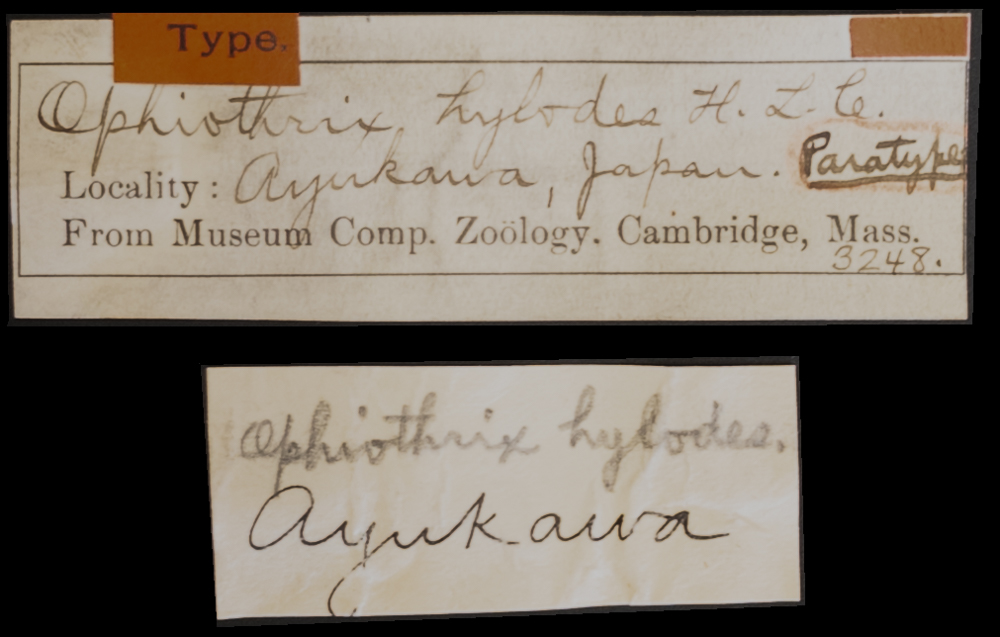 Type.
Ophiothrix hylodes H. L. C.
Locality: Ayukawa, Japan. Paratype
From Museum Comp. Zoölogy. Cambridge, Mass.
3248.
Ophiothrix hylodes.
Ayukawa